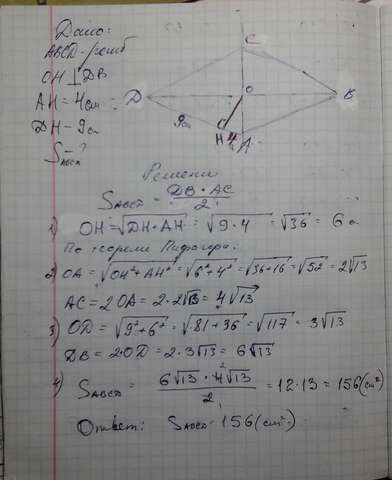 Дано:
ABCD - ромб
OH ⊥ DB
AH = 4см
DH - 9см
S ABCD - ?
C
D
O
B
9см
H
4
A
Решение
S ABCD = DB · AC / 2
1) OH = √DH · AH = √9 · 4 = √36 = 6
По теореме Пифагора:
2) OA = √OH² + AH² = √6² + 4² = √36+16 = √52 = 2√13
AC = 2OA = 2 · 2√13 = 4√13
3) OD = √9² + 6² = √81 + 36 = √117 = 3√13
DB = 2·OD = 2 · 3√13 = 6√13
4) S ABCD = 6√13 · 4√13 / 2 = 12 · 13 = 156 (см²)
Ответ: S ABCD = 156 (см²)